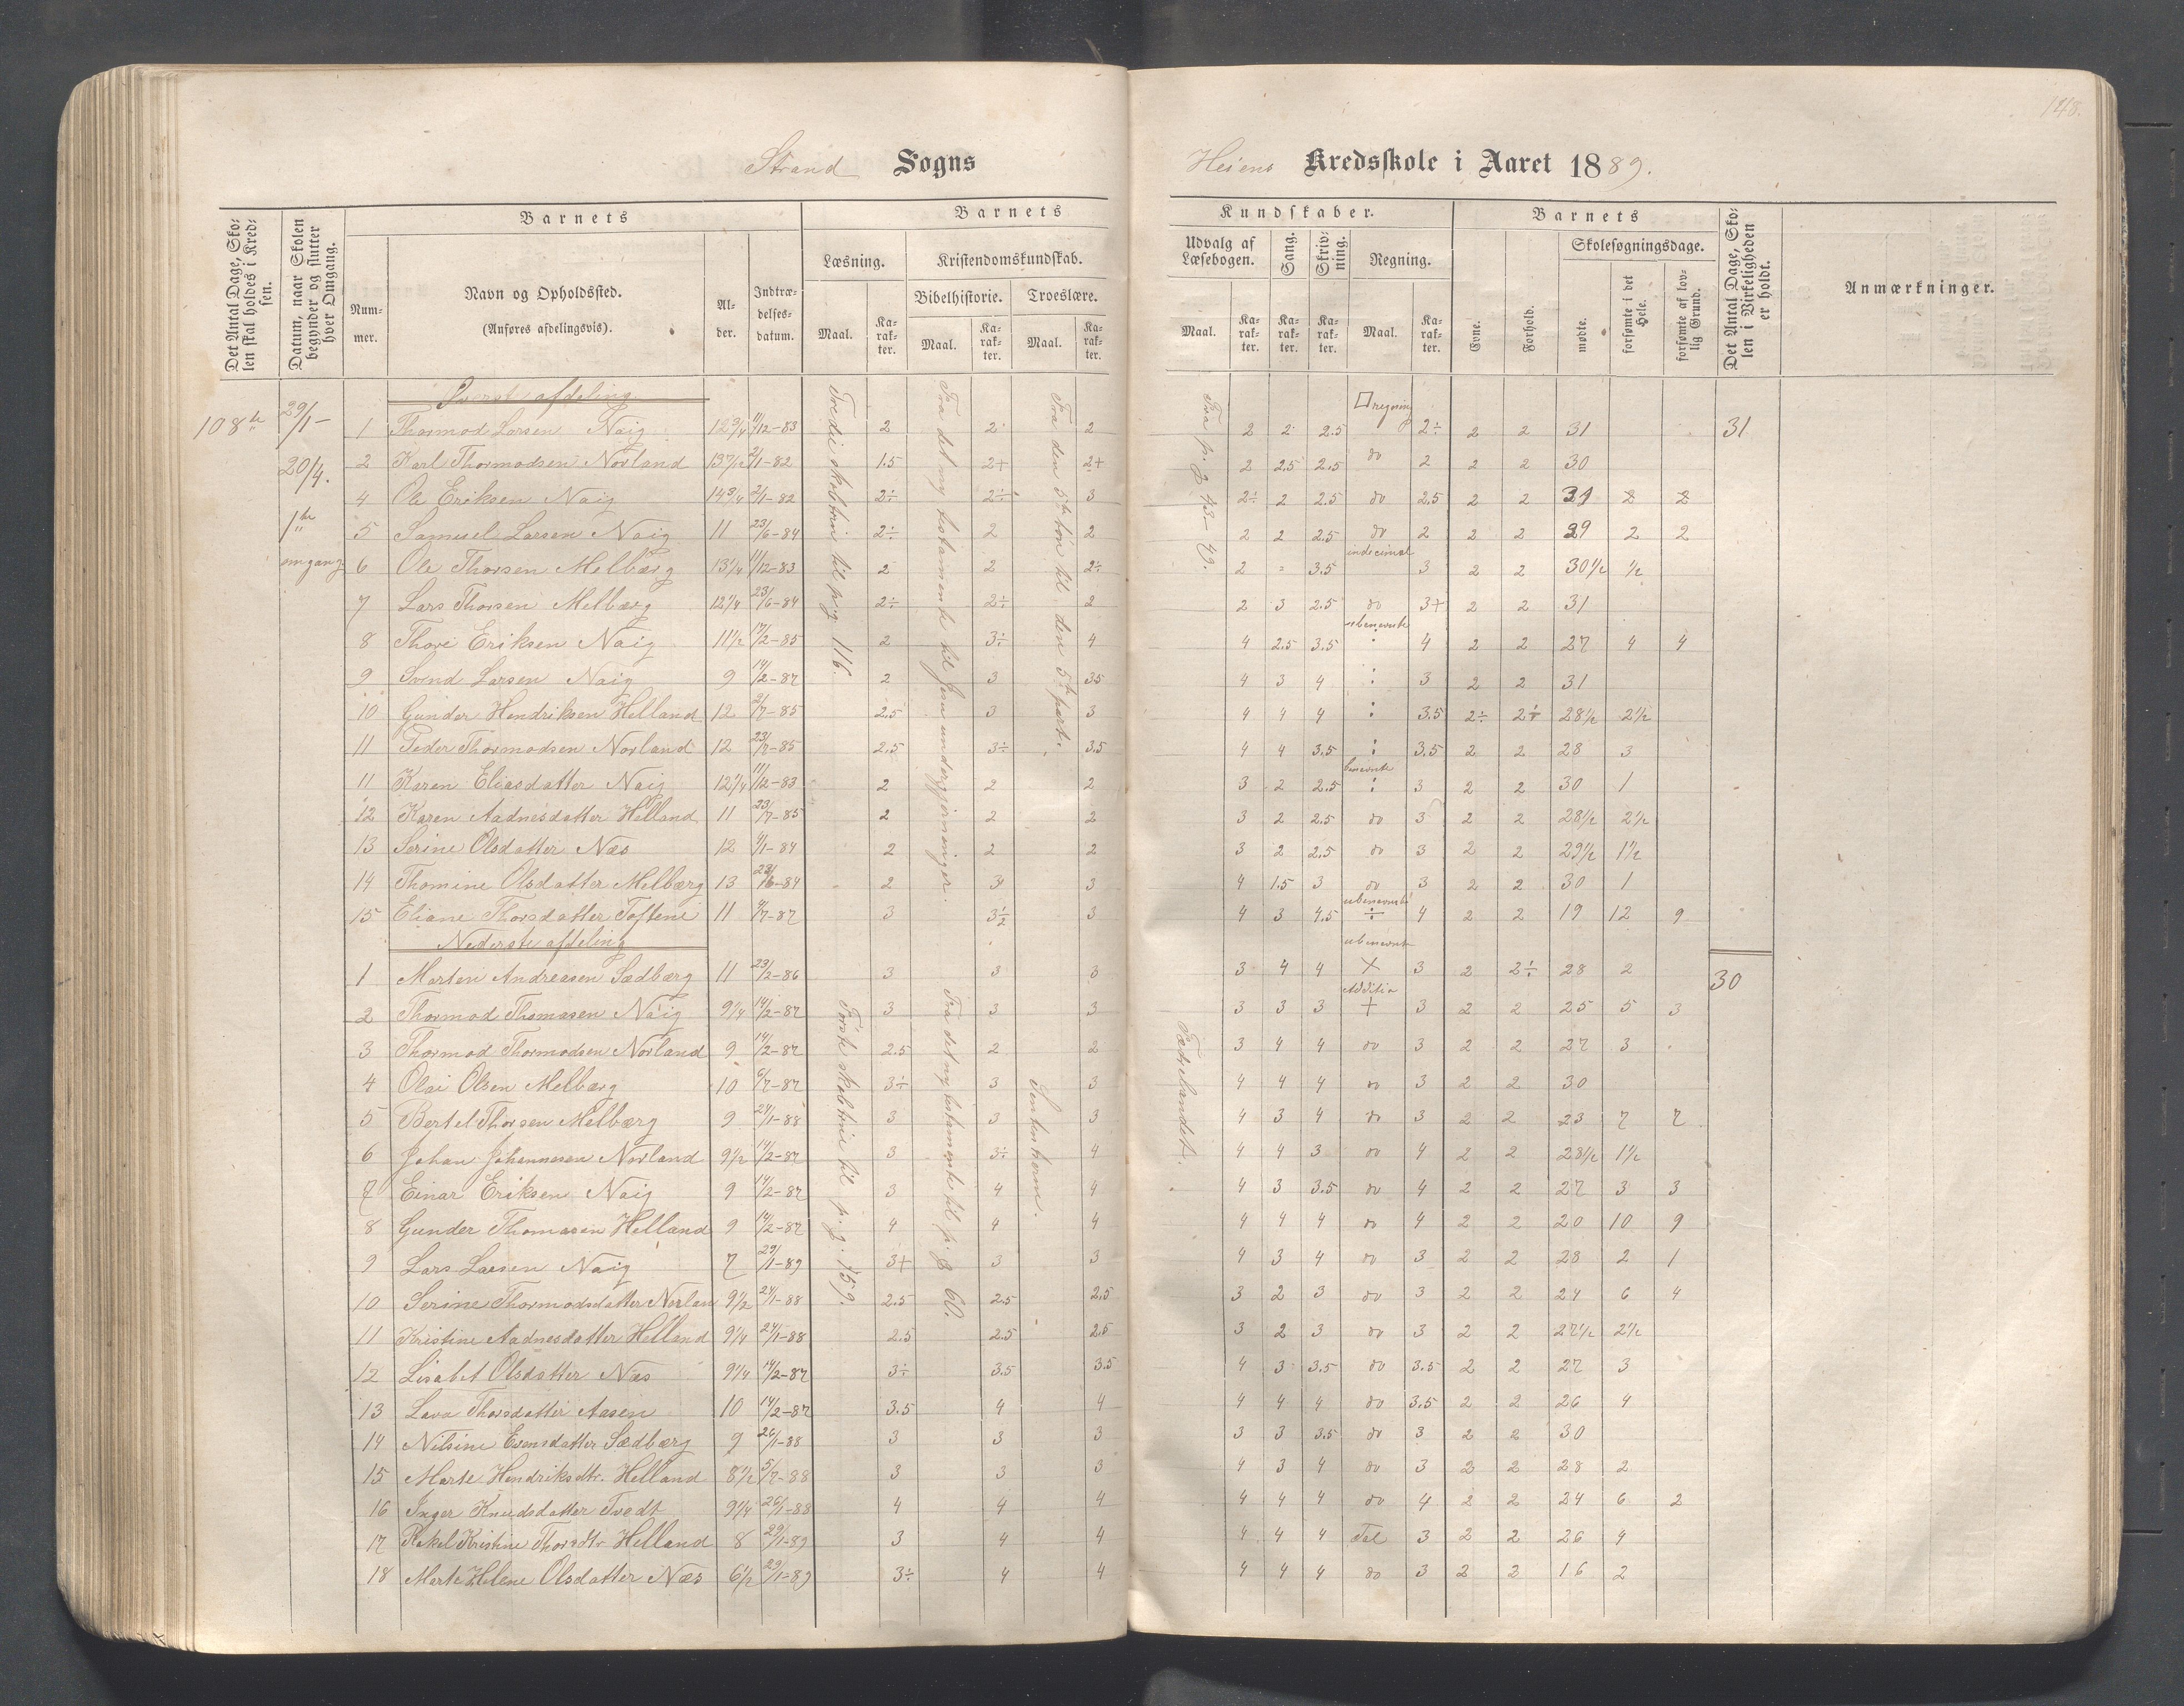 148.
Strand Sogns
Heiens Kredsskole i Aaret 1889.
Det Antal Dage, Skolen skal holdes i Kredsen.
Datum, naar Skolen begynder og slutter hver Omgang.
Barnets
Nummer.
Navn og Opholdssted.
(Anføres afdelingsvis).
Alder.
Indtrædelsesdatum.
Barnets
Læsning.
Maal.
Karakter.
Kristendomskundskab.
Bibelhistorie.
Maal.
Karakter.
Troeslære.
Maal.
Karakter.
Kundskaber.
Udvalg af Læsebogen.
Maal.
Karakter.
Sang.
Karakter.
Skrivning.
Karakter.
Regning.
Maal.
Karakter.
Barnets
Evne.
Forhold.
Skolesøgningsdage.
mødte.
forsømte i det Hele.
forsømte af lovlig Grund.
Det Antal Dage, Skolen i Virkeligheden er holdt.
Anmærkninger.
108
29/1 –
20/4.
1ste
omgang
Tredie skoletrin til p.g 116.
Fra det ny testamente til Jesu undergjerninger.
Fra den 5te bøn til den 5te part.
Fra p. g 43–49.
Øverste afdeling
1 Thormod Larsen Naig 12 3/4 11/12–83 2 2 2 2 2 2.5 □regning 2÷ 2 2 31 31
2 Karl Thormodsen Norland 13 7/12 2/1–82 1.5 2+ 2+ 2 2.5 2.5 do 2 2 2 30
4 Ole Eriksen Naig 14 3/4 2/1–82 2÷ 2÷ 3 2÷ 2 2.5 do 2.5 2 2 31 2 2
5 Samuel Larsen Naig 11 23/6–84 2÷ 2 2 2 2 2.5 do 2 2 2 29 2 2
6 Ole Thorsen Melbærg 13 1/4 11/12–83 2 2 2÷ 2 = 3.5 indecimal 3 2 2 30 1/2 1/2
7 Lars Thorsen Melbærg 12 1/4 23/6–84 2÷ 2÷ 2 2 3 2.5 do 3+ 2 2 31
8 Thore Eriksen Naig 11 1/2 17/2–85 2 3÷ 4 4 2.5 3.5 ubenevnte : 4 2 2 27 4 4
9 Svend Larsen Naig 9 14/2–87 2 3 35 4 3 4 : 3 2 2 31
10 Gunder Hendriksen Helland 12 2/7–85 2.5 3 3 4 4 4 : 3.5 2÷ 2÷ 28 1/2 2 1/2
11 Peder Thormodsen Norland 12 23/7–85 2.5 3÷ 3.5 4 4 3.5 : 3.5 2 2 28 3
11 Karen Eliasdatter Naig 12 1/4 11/12–83 2 2 2 3 2 2.5 benevnte : 3 2 2 30 1
12 Karen Aadnesdatter Helland 11 23/7–85 2 2 2 3 2 2.5 do 3 2 2 28 1/2 2 1/2
13 Serine Olsdatter Næs 12 4/1–84 2 2 2 3 2 2.5 do 3 2 2 29 1/2 1 1/2
14 Thomine Olsdatter Melbærg 13 23/6–84 2 3 3 4 1.5 3 do 3 2 2 30 1
15 Eliane Thorsdatter Toftene 11 4/7–87 3 3 1/2 3 4 3 4.5 ubenevnte ÷ 4 2 2 19 12 9
Nederste afdeling
Første skoletrin til p. g. 159.
Fra det ny testamente til p. g 60.
Sentenserne.
Fædrelandet.
1 Morten Andreasen Sædbærg 11 23/2–86 3 3 3 3 4 4 ubenevnte × 3 2 2÷ 28 2 30
2 Thormod Thomasen Naig 9 1/4 14/2–87 3 3 3 3 3 3 Additio + 3 2 2 25 5 3
3 Thormod Thormodsen Norland 9 14/2–87 2.5 2 2 3 4 4 do 3 2 2 27 3
4 Olai Olsen Melbærg 10 6/7–87 3÷ 3 3 4 4 4 do 3 2 2 30
5 Bertel Thorsen Melbærg 9 24/1–88 3 3 3 4 3 4 do 3 2 2 23 7 7
6 Johan Johannesen Norland 9 1/2 14/2–87 3 3÷ 4 4 4 3 do 4 2 2 28 1/2 1 1/2
7 Einar Eriksen Naig 9 14/2–87 3 4 4 4 3 3.5 do 4 2 2 27 3 3
8 Gunder Thomasen Helland 9 14/2–87 4 4 4 4 4 4 do 4 2 2 20 10 9
9 Lars Larsen Naig 7 29/1–89 3+ 3 3 4 3 4 do 3 2 2 28 2 1
10 Serine Thormodsdatter Norlan 9 1/2 24/1–88 2.5 2.5 2.5 3 2 3 do 3 2 2 24 6 4
11 Kristine Aadnesdatter Helland 9 1/4 24/1–88 2.5 2.5 2.5 3 2 3 do 3 2 2 27 1/2 2 1/2
12 Lisabet Olsdatter Næs 9 1/4 14/2–87 3÷ 3.5 3.5 4 3 3.5 do 3.5 2 2 27 3
13 Lava Thorsdatter Aasen 10 14/2–87 3.5 4 4 4 4 4 do 3.5 2 2 26 4
14 Nilsine Evensdatter Sædbærg 9 26/1–88 3 3 3 3 3 3.5 do 3 2 2 30
15 Marte Hendriksdtr. Helland 8 1/2 5/7–88 3 3 3 4 3 4 do 3 2 2 28 2
16 Inger Knudsdatter Tvedt 9 1/4 26/1–88 4 4 4 4 4 4 do 4 2 2 24 6 2
17 Rakel Kristine Thorsdtr Helland 8 29/1–89 3 4 4 4 4 4 Tal 3 2 2 26 4
18 Marte Helene Olsdatter Næs 6 1/2 29/1–89 3÷ 4 4 4 4 4 do 3 2 2 16 2